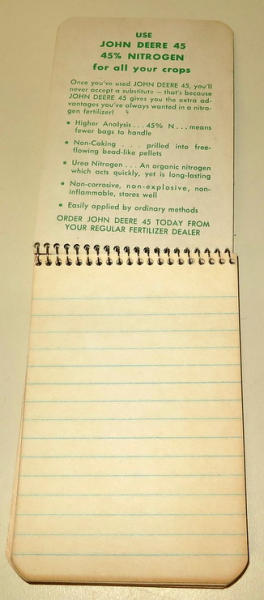 USE
JOHN DEERE 45
45% NITROGEN
for all your crops
Once you've used JOHN DEERE 45, you'll
never accept a substitute — that's because
JOHN DEERE 45 gives you the extra ad-
vantages you've always wanted in a nitro-
gen fertilizer!
• Higher Analysis . . . 45% N . . . means
fewer bags to handle
• Non-Caking . . . prilled into free-
flowing bead-like pellets
• Urea Nitrogen . . . An organic nitrogen
which acts quickly, yet is long-lasting
• Non-corrosive, non-explosive, non-
inflammable, stores well
• Easily applied by ordinary methods
ORDER JOHN DEERE 45 TODAY FROM
YOUR REGULAR FERTILIZER DEALER